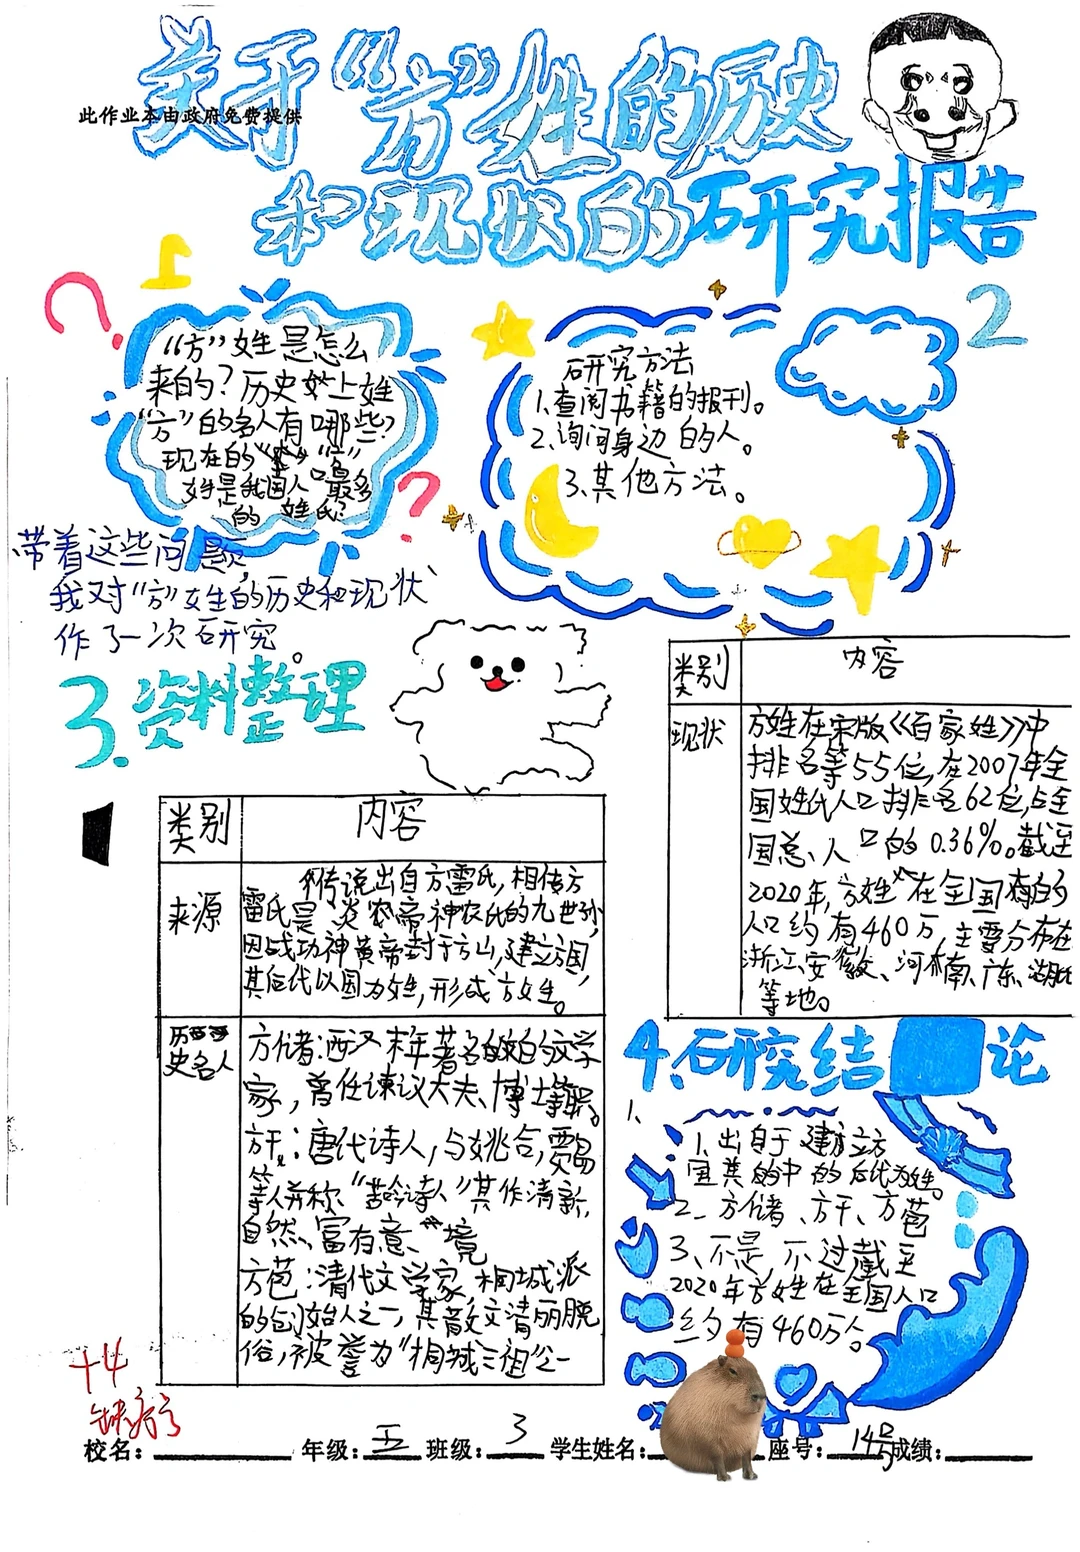 关于“方”姓的历史
此作业本由政府免费提供
和现状的研究报告
1
“方”姓是怎么
来的？历史上姓
“方”的名人有哪些？
现在的“方”
姓是我国人口最多
的姓氏？
带着这些问题，
我对“方”姓的历史和现状
作了一次研究。
2
研究方法
1.查阅书籍的报刊。
2.询问身边的人。
3.其他方法。
3.资料整理
类别 内容
来源 传说出自方雷氏，相传方
雷氏是炎农帝神农氏的九世孙，
因战功神黄帝封于方山，建立方国，
其后代以国为姓，形成方姓。
历史名人
方储：西汉末年著名的文学
家，曾任谏议大夫、博士等职。
方干：唐代诗人，与姚合，贾岛
等人并称“苦吟诗人”其作清新，
自然、富有意境
方苞：清代文学家，桐城派
的创始人之一，其散文清丽脱
俗，被誉为“桐城三祖”之一
类别 内容
现状 方姓在宋版《百家姓》中
排名等55位，在2007年全
国姓氏人口排名62位，占全
国总人口的0.36%。截至
2020年，方姓在全国有的
人口约有460万，主要分布在
浙江、安徽、河南、广东、湖北
等地。
4.研究结论
1.
1.出自于建立方
国其的中的后代为姓。
2.方储、方干、方苞
3.不是，不过截至
2020年方姓在全国人口
约有460万人。
+4
校名： 年级：五 班级：3 学生姓名： 座号：14号 成绩：